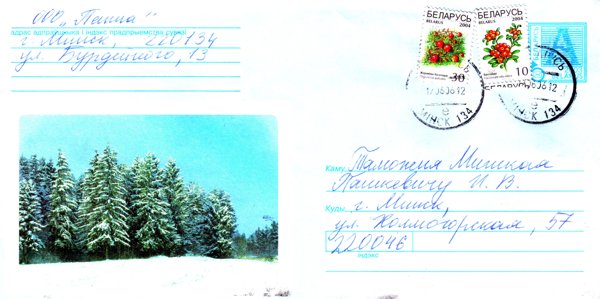 ООО "Пенна"
адрас адпраўшчыка і індэкс прадпрыемства сувязі
г. Минск, 220134
ул. Бурдейного, 13
БЕЛАРУСЬ
BELARUS 2004
30
БЕЛАРУСЬ
BELARUS 2004
10
А
БЕЛАРУСЬ
17 06 06 12
МІНСК 134
БЕЛАРУСЬ
06 06 12
МІНСК 134
Каму Таможня Минская
Пашкевичу И. В.
Куды г. Минск,
ул. Колмогорская, 57
220046
індэкс